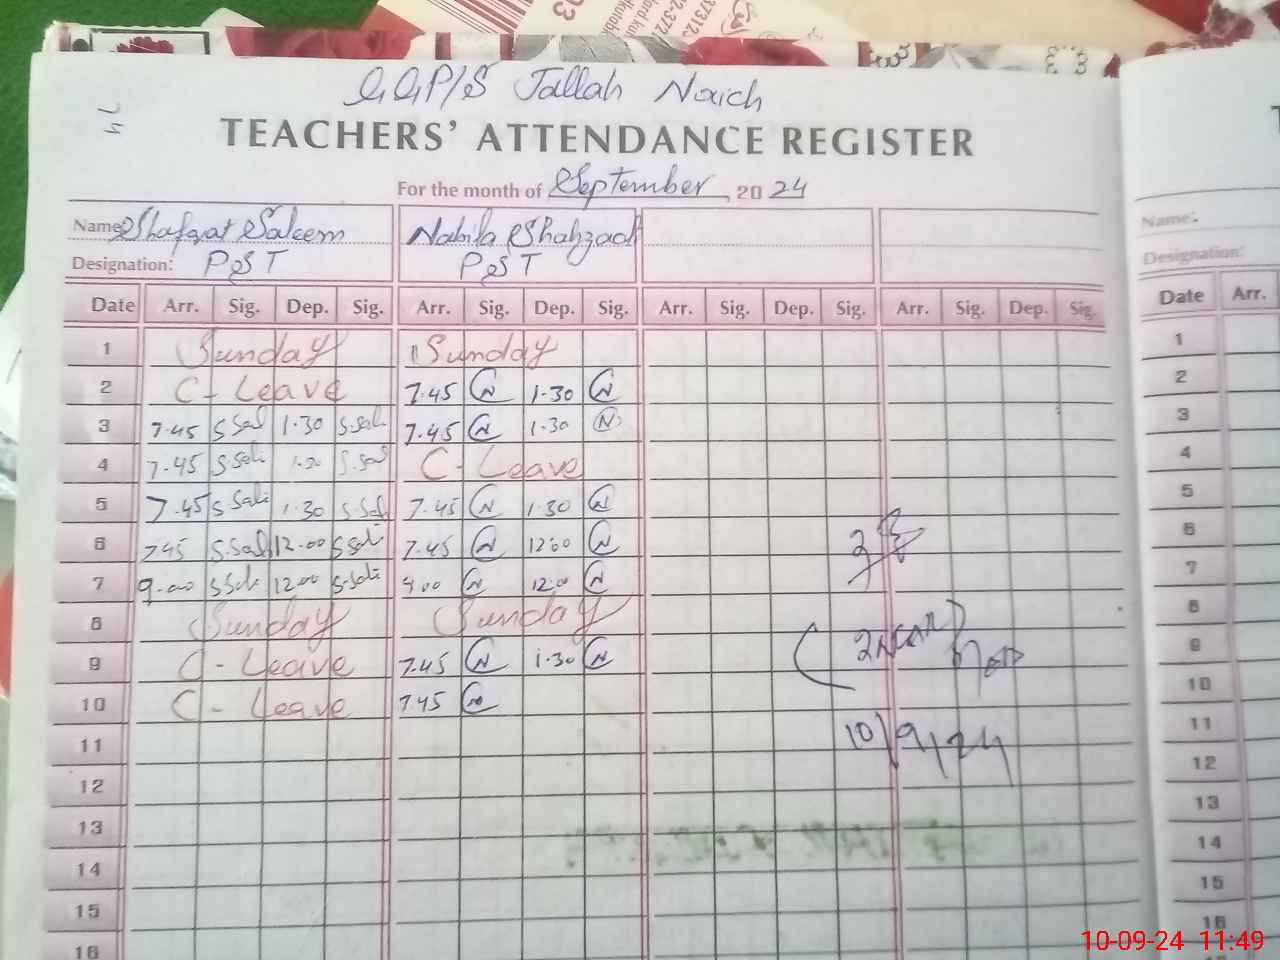 GGP/S Jallah Naich
TEACHERS' ATTENDANCE REGISTER
For the month of September, 2024
Name: Shafqat Saleem Nabila Shahzadi
Designation: PST PST
Date Arr. Sig. Dep. Sig. Arr. Sig. Dep. Sig. Arr. Sig. Dep. Sig. Arr. Sig. Dep. Sig.
1 Sunday Sunday
2 C-Leave 7.45 N 1.30 N
3 7.45 S.Sal 1.30 S.Sal 7.45 N 1.30 N
4 7.45 S.Sal 1.30 S.Sal C-Leave
5 7.45 S.Sal 1.30 S.Sal 7.45 N 1.30 N
6 7.45 S.Sal 12.00 S.Sal 7.45 N 12:00 N
7 9.00 S.Sal 12.00 S.Sal 9.00 N 12:00 N
8 Sunday Sunday
9 C-Leave 7.45 N 1.30 N
10 C-Leave 7.45 N
10/9/24
11
12
13
14
15
16
Name:
Designation:
Date Arr.
1
2
3
4
5
6
7
8
9
10
11
12
13
14
15
16
10-09-24 11:49